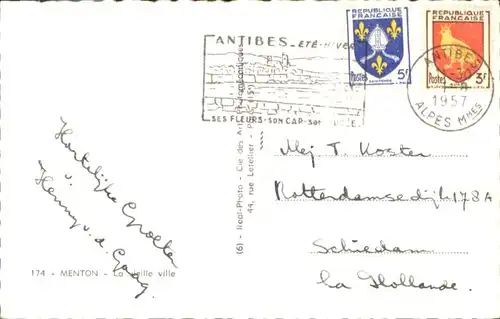 ANTIBES - ÉTÉ - HIVER
SES FLEURS - SON CAP - SON
REPUBLIQUE
FRANCAISE
Postes
5F
REPUBLIQUE
FRANCAISE
Postes
3F
ANTIBES
1957
ALPES MMES
Hartelijke Groeten
v.
Henny v. d. Gaag.
174 - MENTON - La vieille ville
(6) - Real-Photo - Cie des Arts Photomécaniques
44, rue Letellier - P (15e)
Mej. T. Koster
Rotterdamsedijk 178A
Schiedam
La Hollande.